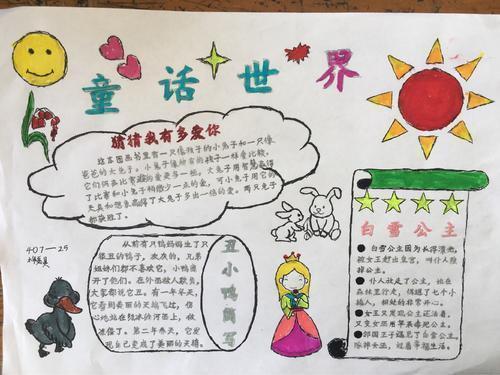 童话世界
猜猜我有多爱你
这本图画书里有一只像孩子的小兔子和一只像
爸爸的大兔子。小兔子像所有的孩子一样会比较。
它们俩在比赛谁的爱更多一些。大兔子用智慧赢得
了比赛和小兔子稍微少一点的爱。可小兔子用它的
天真和想象赢得了大兔子多出一倍的爱。两只兔子
都获胜了。
407-25
丑小鸭简写
从前有只鸭妈妈生了只
很丑的鸭子，友友的，兄弟
姐妹们都不喜欢它，小鸭离
开了他们。在外面被人欺负
大家都说它丑。有一年冬天，
它看到美丽的天鹅飞过，但
第二年春天，它发
现自己变成了美丽的天鹅
白雪公主
白雪公主因为长得漂亮，
被女王赶出皇宫，叫仆人除
掉公主。
仆人放走了公主，她在
森林里行走，偶遇了七个小
矮人，相处的非常开心。
女王又发现公主还活着，
又变女巫用苹果毒死公主。
邻国王子遇见了白雪公主，
除掉女巫，过着幸福生活。